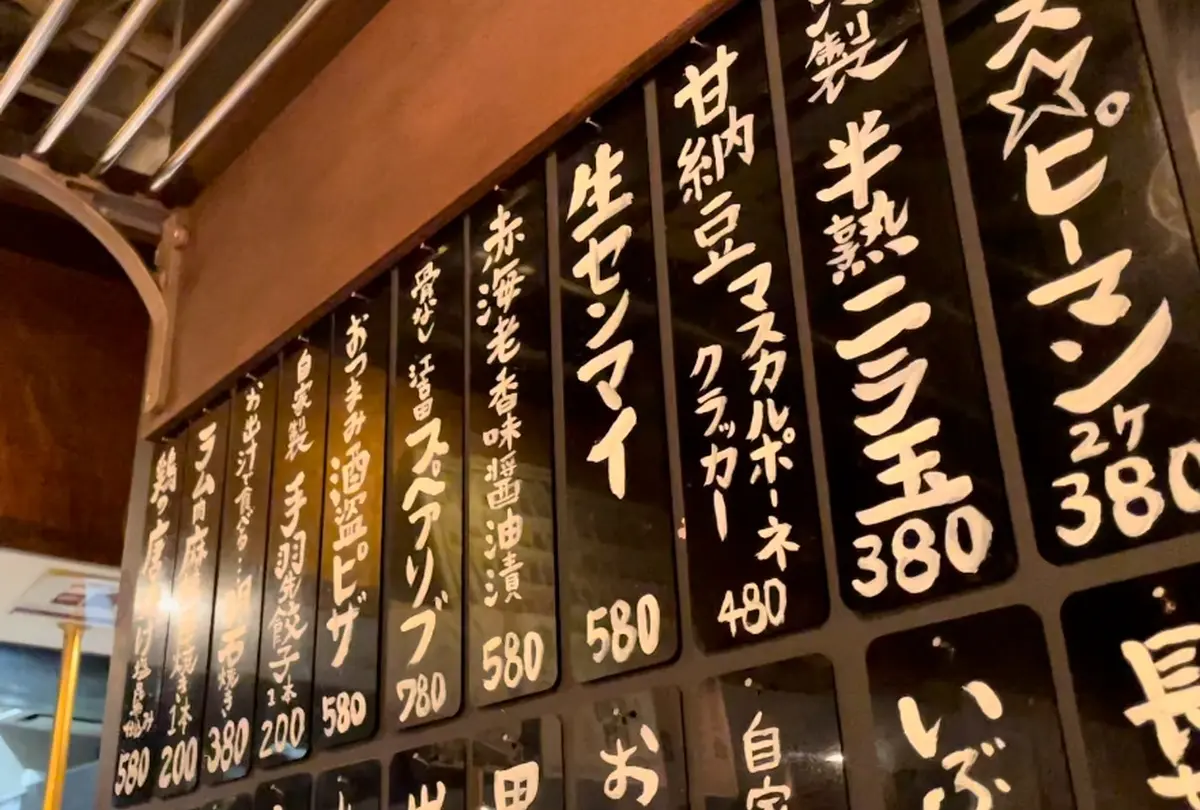 ス☆ピーマン
2ケ
380
製 半熟ニラ玉
380
甘納豆マスカルポーネ
クラッカー
480
生センマイ
580
赤海老香味醤油漬
580
骨なし 江古田スペアリブ
780
おつまみ酒盗ピザ
580
自家製 手羽先餃子
1本
200
お出汁で食べる…明石焼き
380
ラム肉麻
焼き1本
200
鶏の唐
580
いぶ
自家
お
田